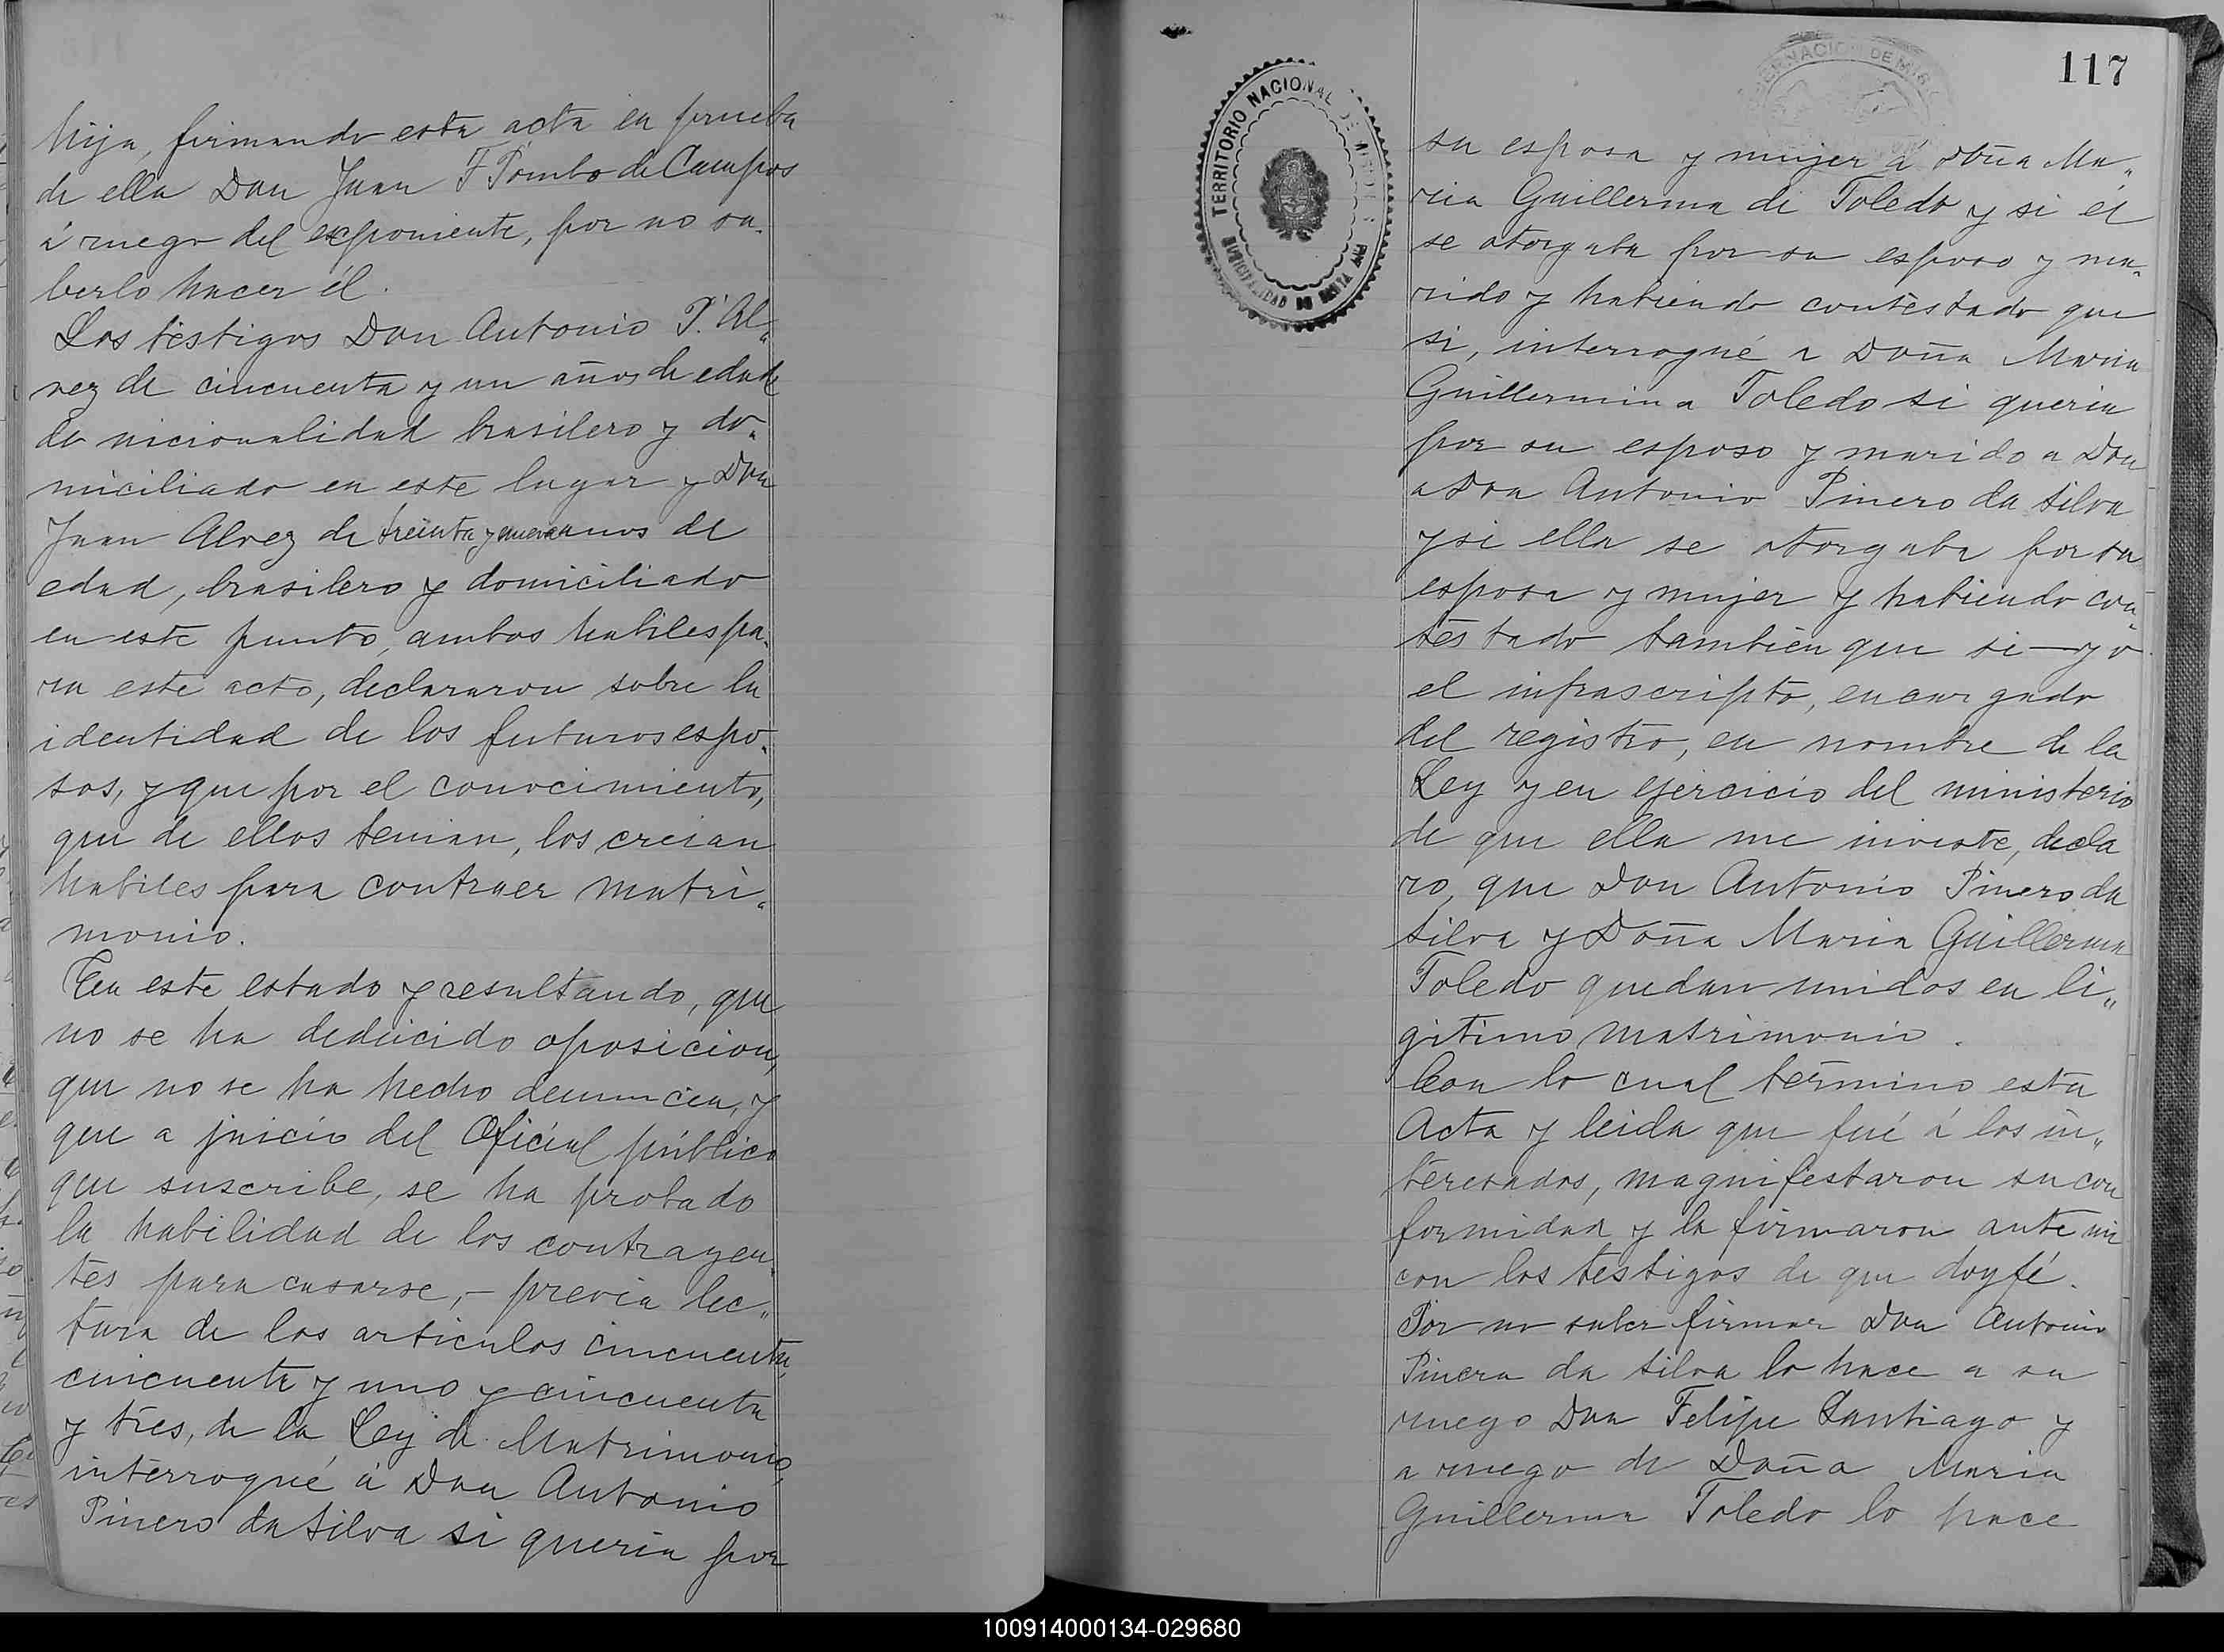 hija, firmando esta acta en prueba
de ella Don Juan F Pombo de Campos
á ruego del exponiente, por no sa„
berlo hacer él.
Los testigos Don Antonio P. Al„
vez de cincuenta y un años de edad
de nicionalidad brasilero y do„
miciliado en este lugar y Don
Juan Alvez de treinta y nueve anos de
edad, brasilero y domiciliado
en este punto, ambos habiles pa„
ra este acto, declararon sobre la
identidad de los futuros espo„
sos, y que por el conocimiento,
que de ellos tenian, los creian
habiles para contraer matri„
monio.
En este estado y resultando, que
no se ha deducido oposicion,
que no se ha hecho denuncia, y
que a juicio del Oficial público
que suscribe, se ha probado
la habilidad de los contrayen„
tes para casarse,- previa lec„
tura de los articulos cincuenta,
cincuenta y uno y cincuenta
y tres, de la Ley de Matrimonio,
interrogué á Don Antonio
Pinero da Silva si queria por
117
TERRITORIO NACIONAL DE MISIONES
MUNICIPALIDAD DE
GOBERNACION DE MISIONES
su esposa y mujer á doña Ma„
ria Guillerma de Toledo y si él
se otorgaba por su esposo y ma„
rido y habiendo contestado que
si, interrogué a Doña Maria
Guillermina Toledo si queria
por su esposo y marido a Don
a Don Antonio Pinero da Silva
y si ella se otorgaba por su
esposa y mujer y habiendo con„
testado tambien que si — yo
el infrascripto, encargado
del registro, en nombre de la
Ley y en ejercicio del ministerio
de que ella me inviste, decla
ro, que Don Antonio Pinero da
Silva y Doña Maria Guillerma
Toledo quedan unidos en li„
gitimo matrimonio.
Con lo cual termino esta
Acta y leida que fué á los in„
teresados, magnifestaron su con
formidad y la firmaron ante mi
con los testigos de que doy fé.
Por no saber firmar Don Antonio
Pinera da Silva lo hace a su
ruego Don Felipe Santiago y
a ruego de Doña Maria
Guillerma Toledo lo hace
100914000134-029680